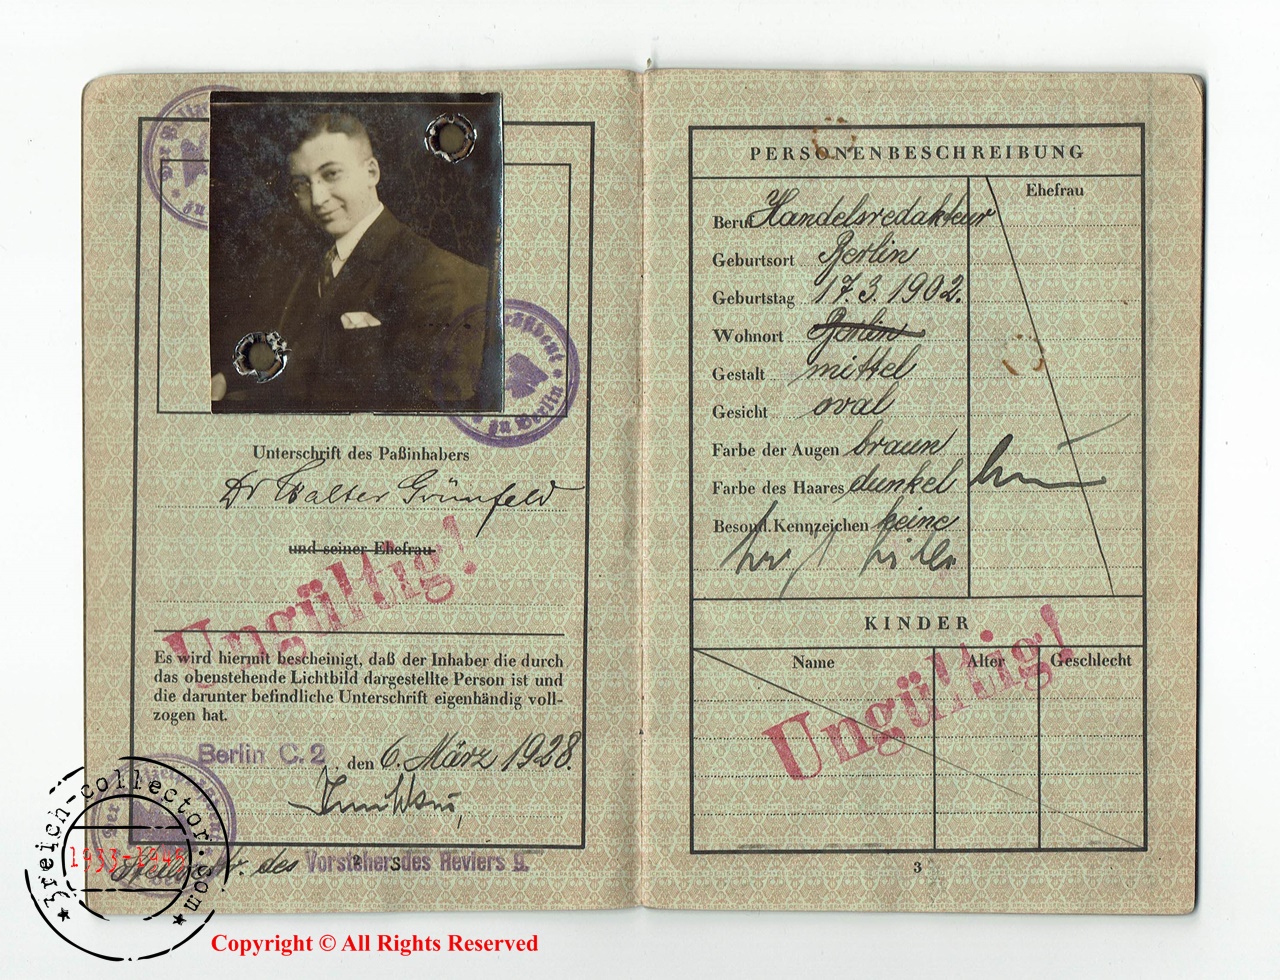 Unterschrift des Paßinhabers
Dr Walter Grünfeld
und seiner Ehefrau
Ungültig!
Es wird hiermit bescheinigt, daß der Inhaber die durch
das obenstehende Lichtbild dargestellte Person ist und
die darunter befindliche Unterschrift eigenhändig voll-
zogen hat.
Berlin C. 2, den 6. März 1928.
des Vorstehers des Reviers 9.
präsident
zu Berlin
3reich-collector.com
1933-1945
Copyright © All Rights Reserved
PERSONENBESCHREIBUNG
Ehefrau
Beruf Handelsredakteur
Geburtsort Berlin
Geburtstag 17.3.1902.
Wohnort Berlin
Gestalt mittel
Gesicht oval
Farbe der Augen braun
Farbe des Haares dunkel
Besond. Kennzeichen keine
KINDER
Name Alter Geschlecht
Ungültig!
3